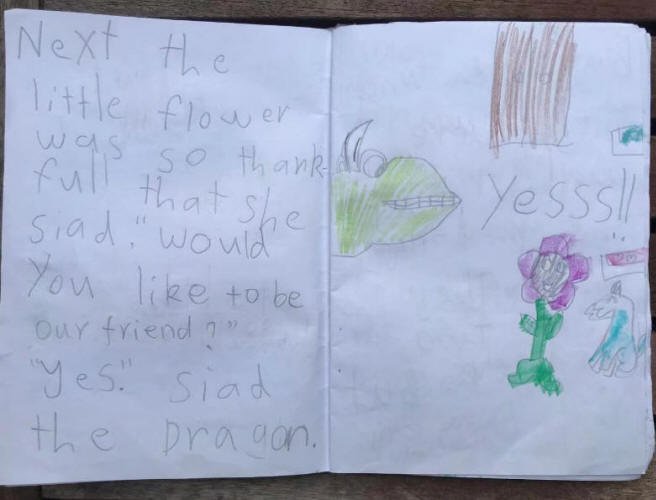 Next the
little flower
was so thank-
full that she
siad. "would
you like to be
our friend?"
"yes." siad
the Dragon.
yesss!!